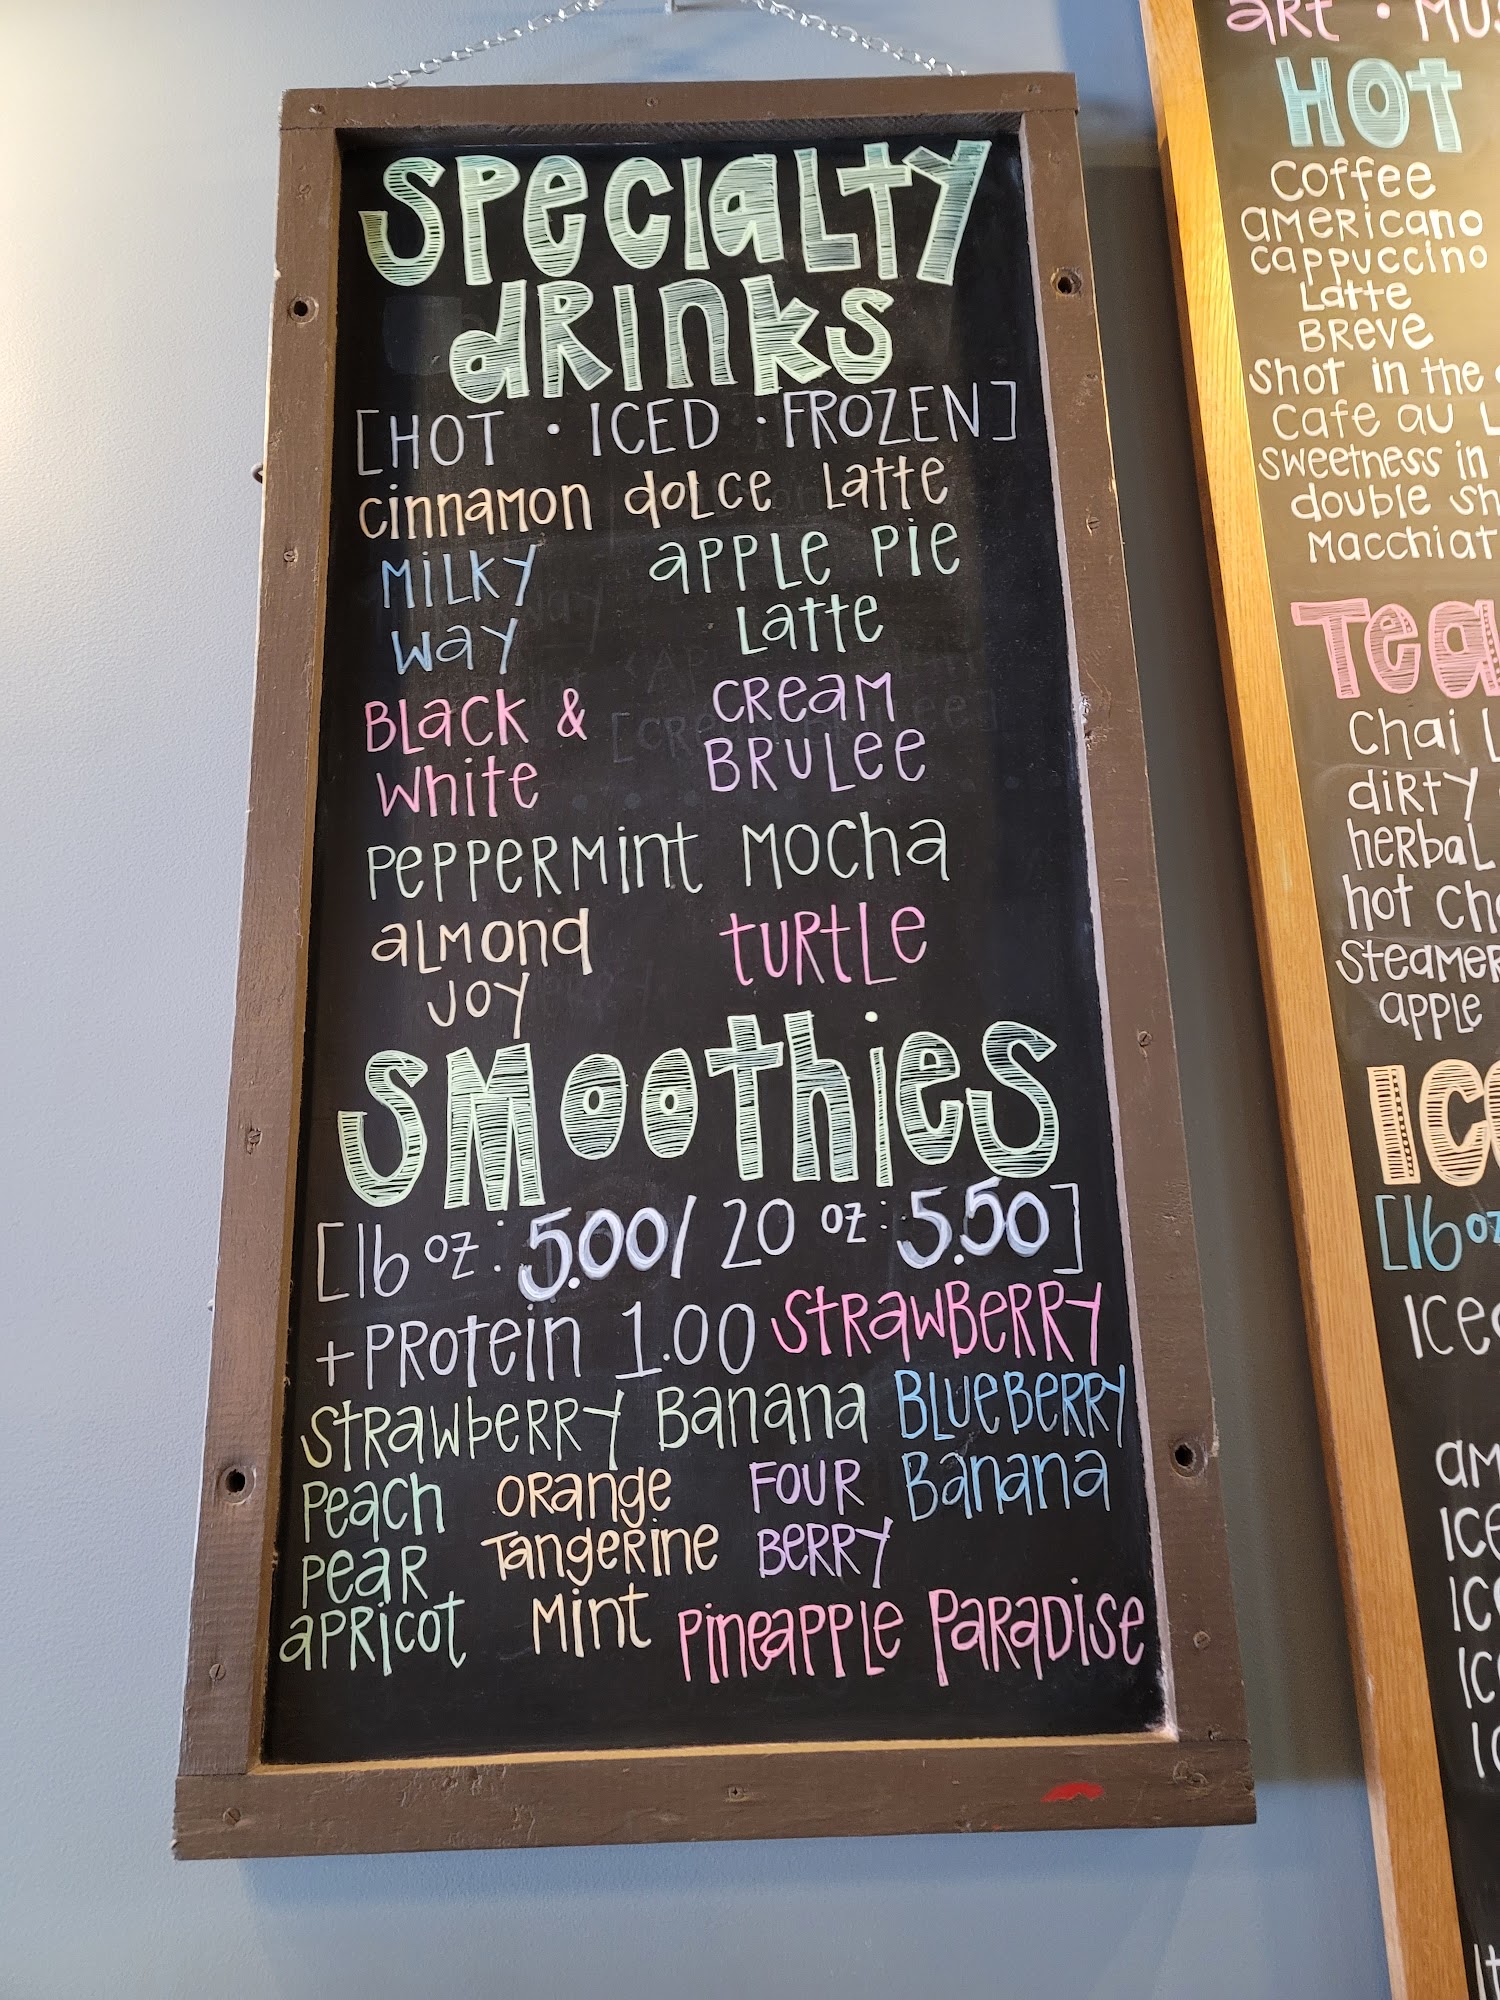 Specialty
drinks
[HOT · ICED · FROZEN]
cinnamon dolce Latte
Milky
Way
apple pie
Latte
Black &
White
Cream
Brulee
Peppermint Mocha
almond
Joy
turtle
Smoothies
[16 oz: 5.00/ 20 oz: 5.50]
+ Protein 1.00
Strawberry
Strawberry Banana
Blueberry
Banana
Peach
Pear
apricot
Orange
Tangerine
Mint
Four
Berry
Pineapple Paradise
art ·
Hot
Coffee
americano
cappuccino
Latte
Breve
Shot in the
Cafe au
Sweetness in
double
Tea
Chai
dirty
herbal
hot
Steamer
apple
[16 oz